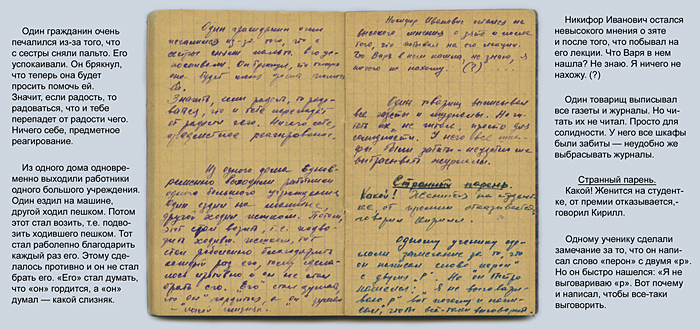 Один гражданин очень
печалился из-за того, что
с сестры сняли пальто. Его
успокаивали. Он брякнул,
что теперь она будет
просить помочь ей.
Значит, если радость, то
радоваться, что и тебе
перепадет от радости чего.
Ничего себе, предметное
реагирование.
Из одного дома одновре-
менно выходили работники
одного большого учреждения.
Один ездил на машине,
другой ходил пешком. Потом
этот стал возить, т.е. подво-
зить ходившего пешком. Тот
стал раболепно благодарить
каждый раз его. Этому сде-
лалось противно и он не стал
брать его. «Его» стал думать,
что «он» гордится, а «он»
думал — какой слизняк.
Один гражданин очень
печалился из-за того, что с
сестры сняли пальто. Его ус-
покаивали. Он брякнул, что теперь
она будет просить помочь
ей.
Значит, если радость, то радо-
ваться, что и тебе перепадет
от радости чего. Ничего себе,
предметное реагирование.
Из одного дома однов-
ременно выходили работники
одного большого учреждения
Один ездил на машине,
другой ходил пешком. Потом
этот стал возить, т.е. подво-
зить ходившего пешком. Тот
стал раболепно благодарить
каждый раз его. Этому сдела-
лось противно и он не стал
брать его. "Его" стал думать,
что "он" гордится, а "он" думал
— какой слизняк.
Никифор Иванович остался не
высокого мнения о зяте и после
того, что побывал на его лекции.
Что Варя в нем нашла? Не знаю. Я
ничего не нахожу. (?)
Один товарищ выписывал
все газеты и журналы. Но чи-
тать их не читал. Просто для
солидности. У него все шка-
фы были забиты — неудобно же
выбрасывать журналы.
Странный парень.
Какой! Женится на студент-
ке, от премии отказывается,
говорил Кирилл.
Одному ученику сде-
лали замечание за то, что
он написал слово "перон"
с двумя "р". Но он быстро
нашелся: "Я не выговари-
ваю р". Вот почему и напи-
сал, чтобы всё-таки выговорить.
Никифор Иванович остался
невысокого мнения о зяте
и после того, что побывал на
его лекции. Что Варя в нем
нашла? Не знаю. Я ничего не
нахожу. (?)
Один товарищ выписывал
все газеты и журналы. Но чи-
тать их не читал. Просто для
солидности. У него все шкафы
были забиты — неудобно же
выбрасывать журналы.
Странный парень.
Какой! Женится на студент-
ке, от премии отказывается,-
говорил Кирилл.
Одному ученику сделали
замечание за то, что он напи-
сал слово «перон» с двумя «р».
Но он быстро нашелся: «Я не
выговариваю «р». Вот почему
и написал, чтобы все-таки
выговорить.